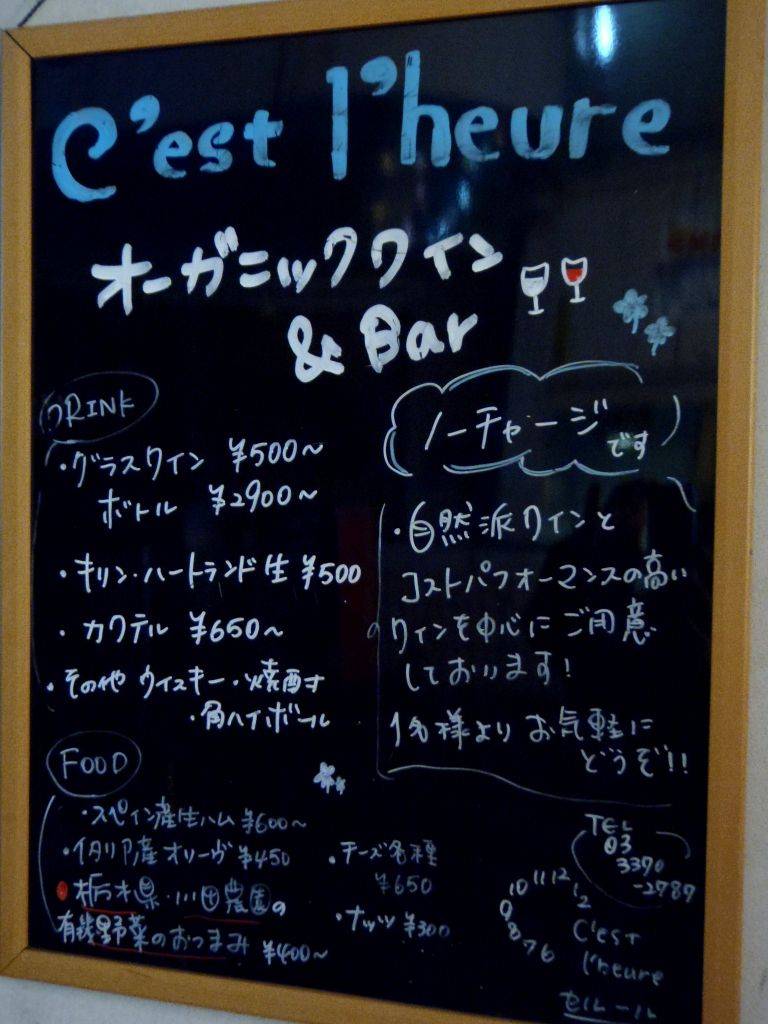 C'est l'heure
オーガニックワイン
& Bar
DRINK
・グラスワイン ¥500〜
ボトル ¥2900〜
・キリン・ハートランド生 ¥500
・カクテル ¥650〜
・その他 ウィスキー・焼酎
・角ハイボール
ノーチャージです
・自然派ワインと
コストパフォーマンスの高い
ワインを中心にご用意
しております!
1名様よりお気軽に
どうぞ!!
FOOD
・スペイン産生ハム ¥600〜
・イタリア産オリーヴ ¥450
栃木県・川田農園の
有機野菜のおつまみ ¥400〜
・チーズ各種
¥650
・ナッツ ¥300
TEL
03
3370
-2787
10 11 12 1 2
9 8 7 6
C'est
l'heure
セルール